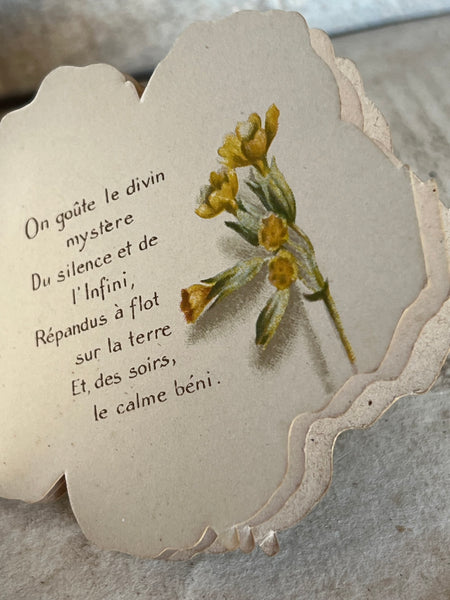 On goûte le divin
mystère
Du silence et de
l'Infini,
Répandus à flot
sur la terre
Et, des soirs,
le calme béni.